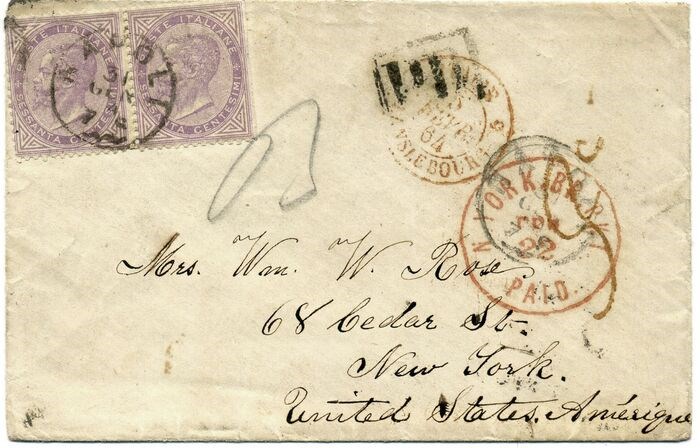 POSTE ITALIANE POSTE ITALIANE
SESSANTA CENTESIMI SESSANTA CENTESIMI
NAPOLI
P.D.
FEVR.
64
N. YORK BR. PKT
22
PAID
Mrs. Wm. W. Rose.
68 Cedar St.
New York.
United States. Amérique